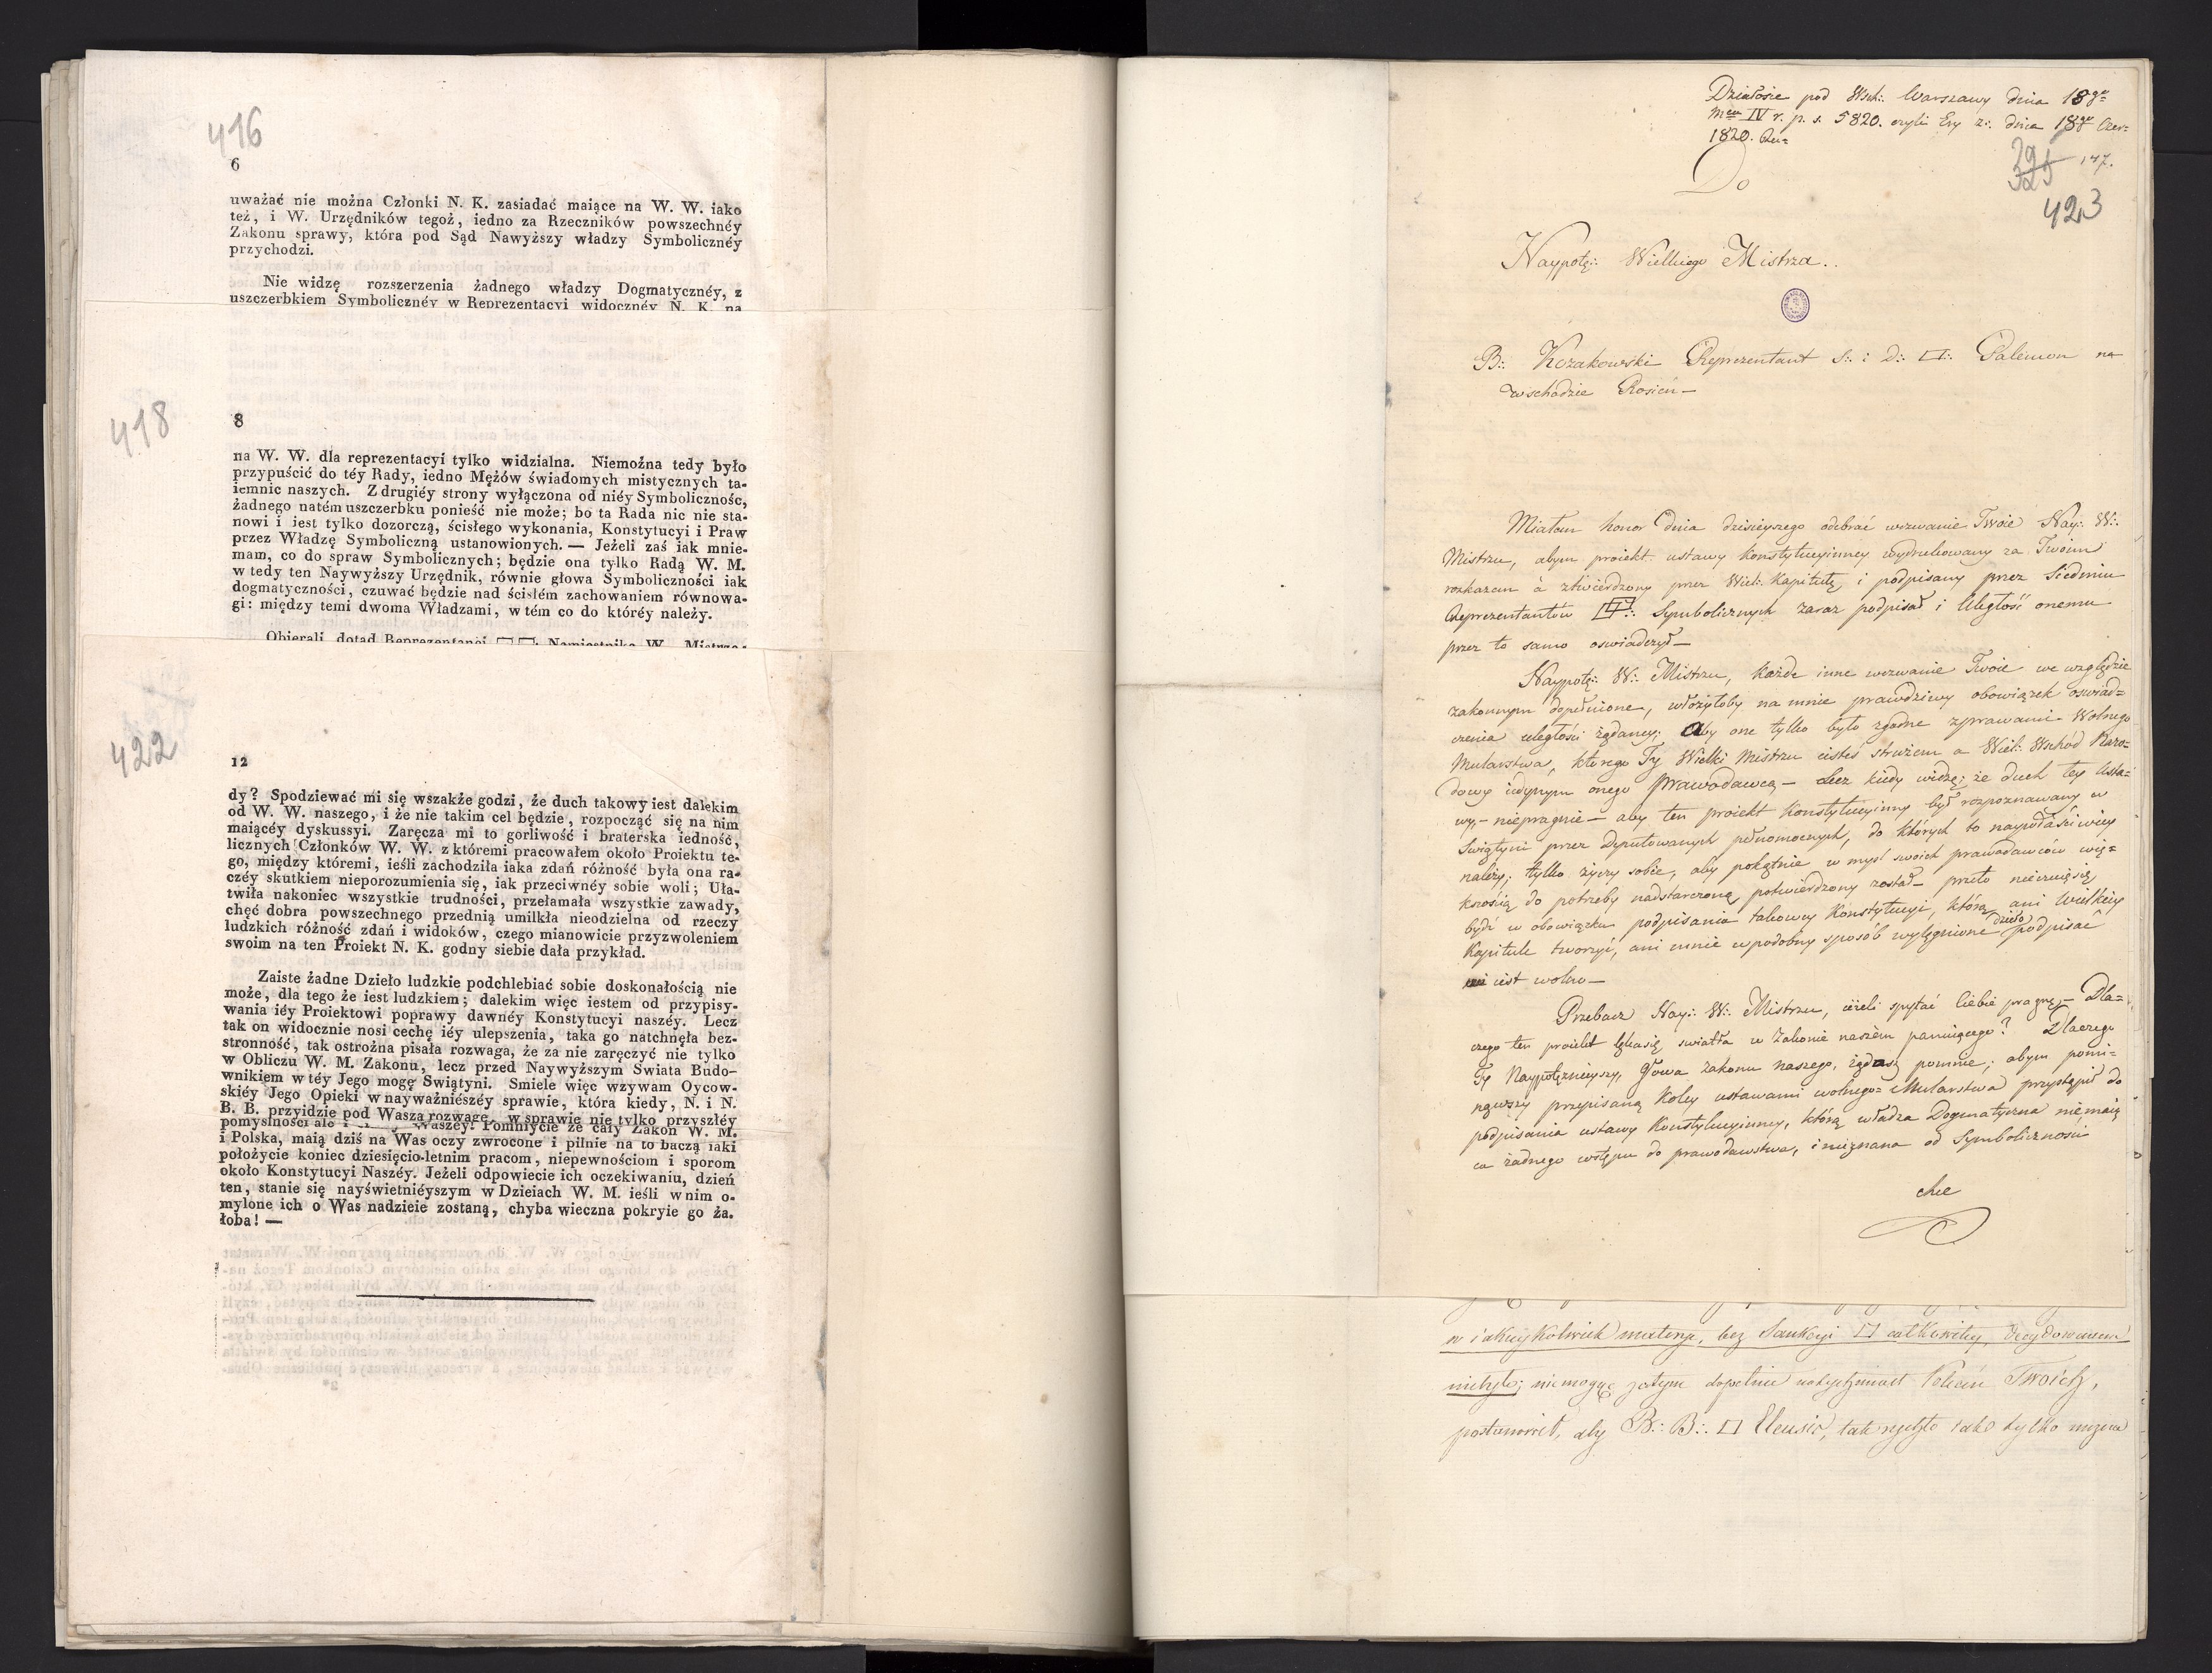 416
6
uważać nie można Członki N. K. zasiadać maiące na W. W. iako
też, i W. Urzędników tegoż, iedno za Rzeczników powszechnéy
Zakonu sprawy, która pod Sąd Nawyższy władzy Symbolicznéy
przychodzi.
Nie widzę rozszerzenia żadnego władzy Dogmatycznéy, z
uszczerbkiem Symbolicznéy w Reprezentacyi widocznéy N. K. na
418
8
na W. W. dla reprezentacyi tylko widzialna. Niemożna tedy było
przypuścić do téy Rady, iedno Mężów świadomych mistycznych ta-
iemnic naszych. Z drugiéy strony wyłączona od niéy Symboliczność,
żadnego natém uszczerbku ponieść nie może; bo ta Rada nic nie sta-
nowi i iest tylko dozorczą, ścisłego wykonania, Konstytucyi i Praw
przez Władzę Symboliczną ustanowionych. — Jeżeli zaś iak mnie-
mam, co do spraw Symbolicznych; będzie ona tylko Radą W. M.
w tedy ten Naywyższy Urzędnik, równie głowa Symboliczności iak
dogmatyczności, czuwać będzie nad ścisłém zachowaniem równowa-
gi: między temi dwoma Władzami, w tém co do któréy należy.
Obierali dotąd Reprezentanci □□: Namiestnika W. Mistrza.
422
12
dy? Spodziewać mi się wszakże godzi, że duch takowy iest dalekim
od W. W. naszego, i że nie takim cel będzie, rozpocząć się na nim
maiącéy dyskussyi. Zaręcza mi to gorliwość i braterska iedność,
licznych Członków W. W. z któremi pracowałem około Proiektu te-
go, między któremi, ieśli zachodziła iaka zdań różność była ona ra-
czéy skutkiem nieporozumienia się, iak przeciwnéy sobie woli; Uła-
twiła nakoniec wszystkie trudności, przełamała wszystkie zawady,
chęć dobra powszechnego przednią umilkła nieodzielna od rzeczy
ludzkich różność zdań i widoków, czego mianowicie przyzwoleniem
swoim na ten Proiekt N. K. godny siebie dała przykład.
Zaiste żadne Dzieło ludzkie podchlebiać sobie doskonałością nie
może, dla tego że iest ludzkiem; dalekim więc iestem od przypisy-
wania iéy Proiektowi poprawy dawnéy Konstytucyi naszéy. Lecz
tak on widocznie nosi cechę iéy ulepszenia, taka go natchnęła bez-
stronność, tak ostrożna pisała rozwaga, że za nie zaręczyć nie tylko
w Obliczu W. M. Zakonu, lecz przed Naywyższym Świata Budo-
wnikiem w téy Jego mogę Świątyni. Smiele więc wzywam Oycow-
skiéy Jego Opieki w nayważniészéy sprawie, która kiedy, N. i N.
B. B. przyidzie pod Waszą rozwagę, w sprawie nie tylko przyszłéy
pomyślności ale i Waszéy! Pomniycie że cały Zakon W. M.
i Polska, maią dziś na Was oczy zwrocone i pilnie na to baczą iaki
położycie koniec dziesięcio-letnim pracom, niepewnościom i sporom
około Konstytucyi Naszéy. Jeżeli odpowiecie ich oczekiwaniu, dzień
ten, stanie się nayświetniéyszym w Dzieiach W. M. ieśli w nim o-
mylone ich o Was nadzieie zostaną, chyba wieczna pokryie go ża-
łoba! —
Działosie pod Wsch:. Warszawy dnia 18go
Mca IV r. p. s. 5820. czyli Ery z:. dnia 18go Czer=
1820. Rku
147.
395
423
Do
Naypotę:. Wielkiego Mistrza..
B:. Kozakowski Reprezentant S:. i D:. □:. Palemon na
wschodzie Rosień —
Miałem honor dnia dzisieyszego odebrać wezwanie Twoie Nay:. W:.
Mistrzu, abym proiekt ustawy konstytucyinney wydrukowany za Twoim
rozkazem á ztwierdzony przez Wiel:. Kapitułę i podpisany przez Siedmiu
Reprezentantów □:. Symbolicznych zaraz podpisał i Uległość onemu
przez to samo oswiadczył —
Naypotę:. W:. Mistrzu, każde inne wezwanie Twoie we względzie
zakonnym dopełnione, włożyłoby na mnie prawdziwy obowiązek oswiad=
czenia uległości żądaney; Aby one tylko było zgodne z prawami Wolnego
Mularstwa, którego Ty Wielki Mistrzu iesteś stróżem a Wiel:. Wschód Naro=
dowy iedynym onego prawodawcą — Lecz kiedy widzę; że duch tey Usta=
wy, — niepragnie — aby ten proiekt Konstytucyinny był rozpoznawany w
Swiątyni przez Deputowanych pełnomocnych, do których to naywłaściwiey
należy; tylko życzy sobie, aby pokątnie w mysl swoich prawodawców wię=
kszością do potrzeby nadstarczoną potwierdzony został — przeto nieczuię się
bydź w obowiązku podpisania takowey Konstytucyi, którą ani Wielkiey
Kapitule tworzyć, ani mnie w podobny sposób wylęgnione dzieło podpisać
nie iest wolno —
Przebacz Nay:. W:. Mistrzu, ieżeli spytać Ciebie pragnę — Dla=
czego ten proiekt lęka się swiatła w Zakonie naszém panuiącego? Dlaczego
Ty Naypotężnieyszy, Głowa Zakonu naszego, żądasz po mnie; abym pomi=
nąwszy przepisaną koley ustawami wolnego = Mularstwa przystąpił do
podpisania ustawy Konstytucyinney, którą władza Dogmatyczna niemaią
ca żadnego wstępu do prawodawstwa, i nieznana od Symboliczności
chce
w iakieykolwiek materyi, bez Sankcyi □ całkowitey, decydowanem
niebyło; niemogąc zatym dopełnić natychmiast Poleceń Twoich,
postanowił, aby B:. B:. □ Eleusis, tak rychło iako tylko można